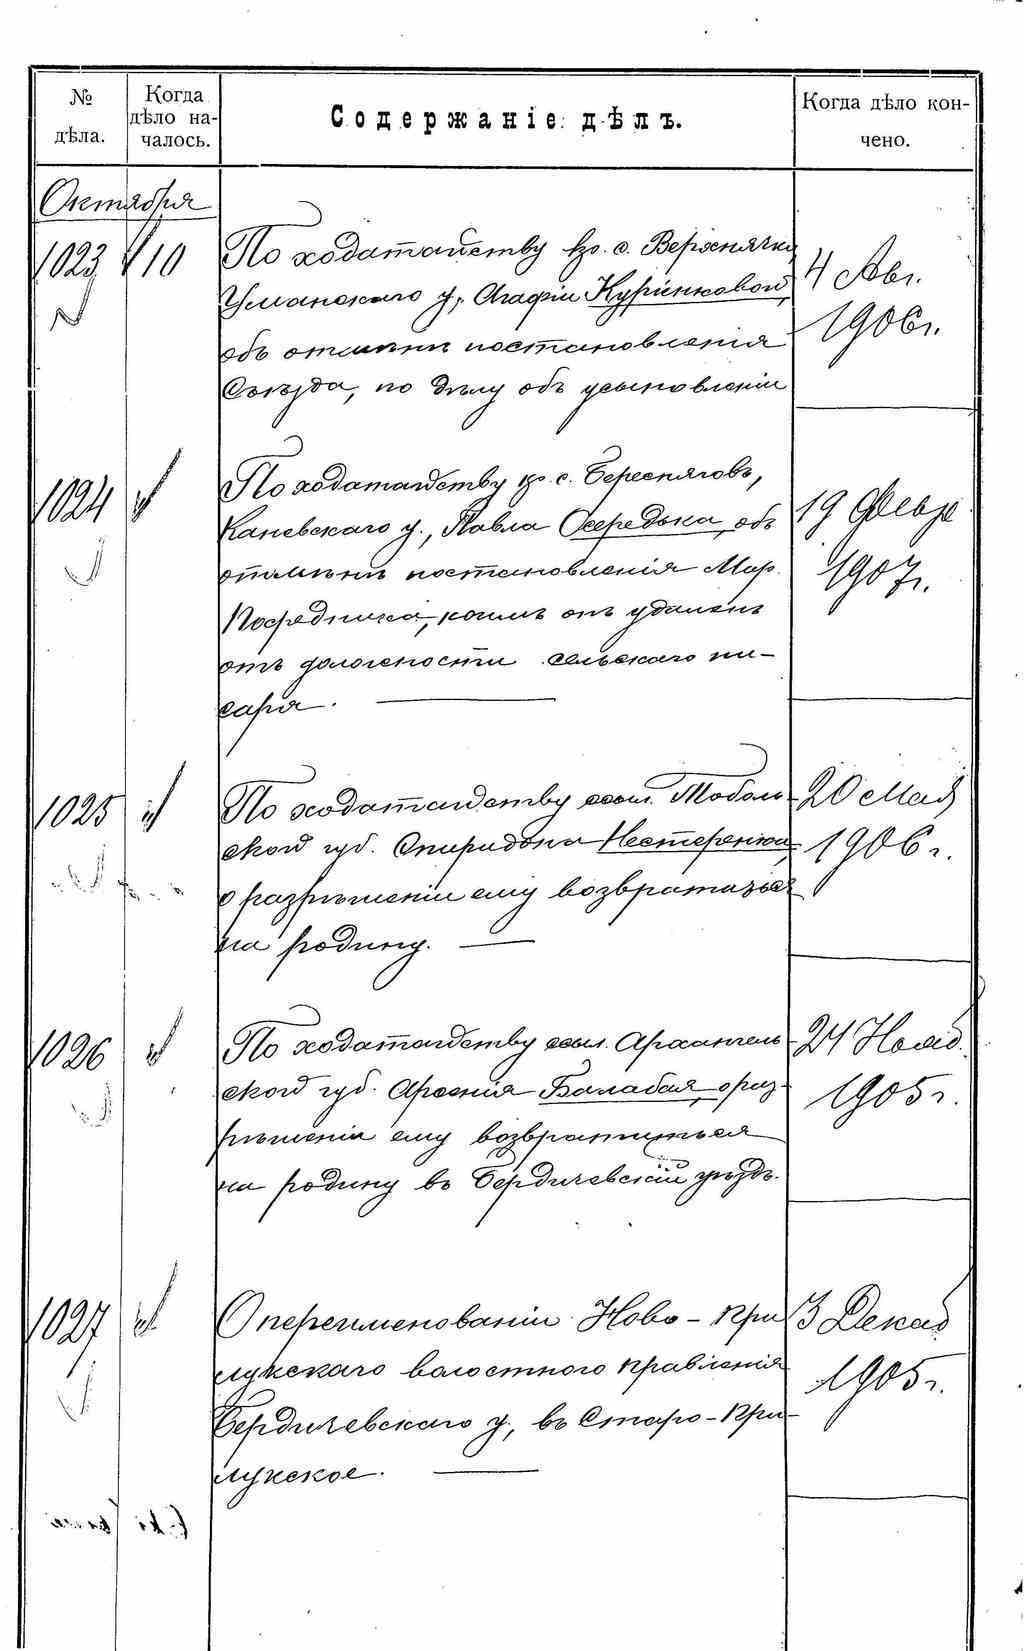 № дѣла.
Когда дѣло началось.
Содержаніе дѣлъ.
Когда дѣло кончено.
Октября
1023 10
По ходатайству кр. с. Верхнячки
Уманскаго у., Агафіи Куріенковой,
объ отмѣнѣ постановленія
Съѣзда, по дѣлу объ усыновленіи
4 Авг.
1906 г.
1024
По ходатайству кр. с. Береснягов,
Каневскаго у., Павла Осередька, объ
отмѣнѣ постановленія Мир.
Посредника, коимъ онъ удаленъ
отъ должности сельскаго пи-
саря.
19 Февр
1907 г.
1025
По ходатайству ссыл. Тоболь-
ской губ. Спиридона Нестеренка,
о разрѣшеніи ему возвратиться
на родину.
20 Мая
1906 г.
1026
По ходатайству ссыл. Архангель-
ской губ. Арсенія Балабая, о раз-
рѣшеніи ему возвратиться
на родину въ Бердичевскій уѣздъ.
24 Нояб.
1905 г.
1027
О переименованіи Ново-При
лукскаго волостного правленія
Бердичевскаго у., въ Старо-При-
лукское.
3 Декаб
1905 г.